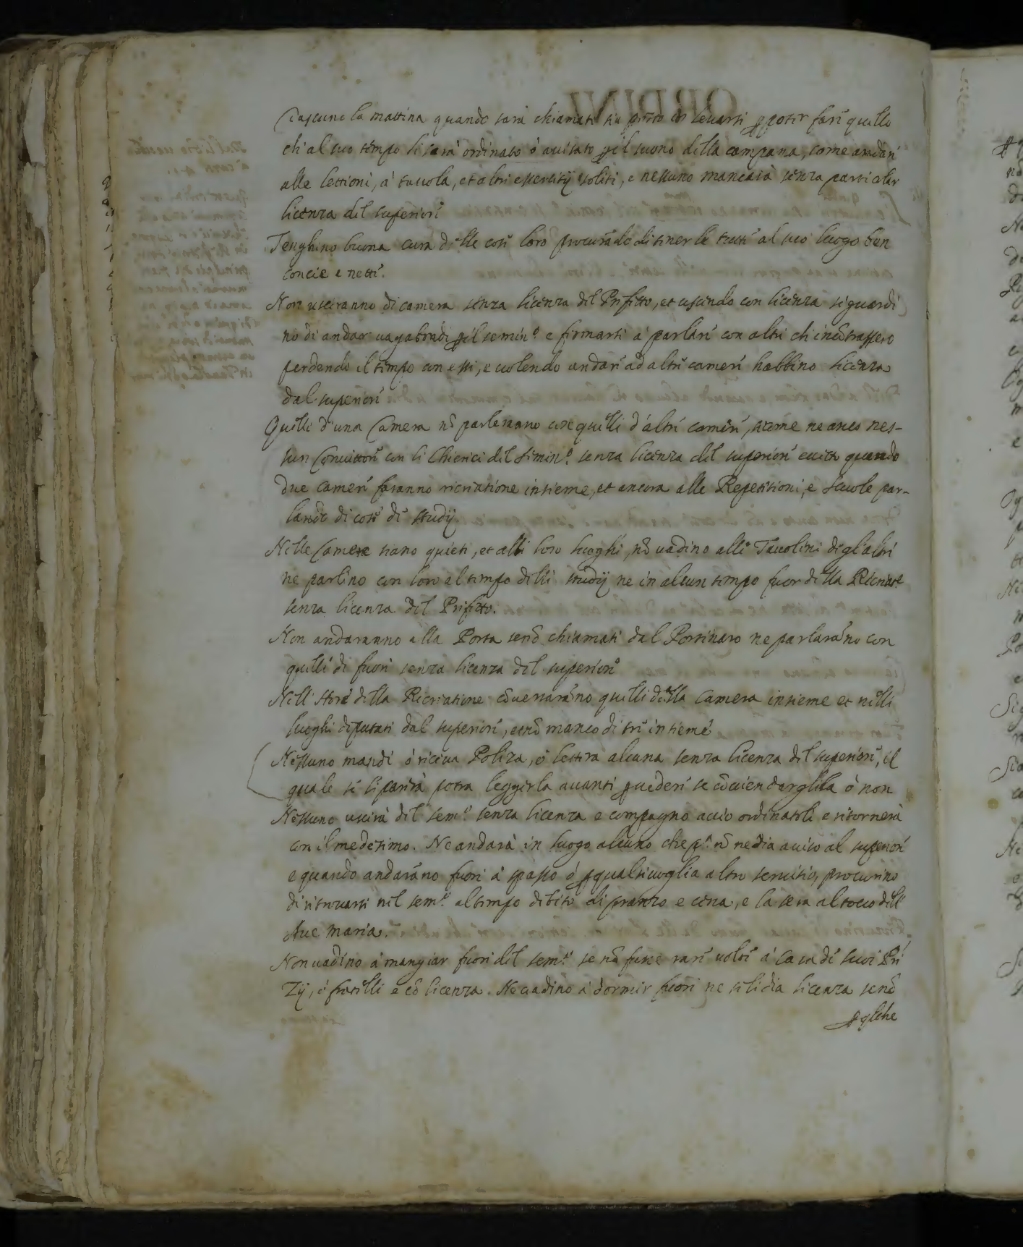 Ciascuno la mattina quando sarà chiamato sia presto à levarsi ꝑ poter fare quello
ch'al suo tempo li sarà ordinato ò avisato ꝑ il suono della campana, come andar'
alle lettioni, à tavola, et altri essercitij soliti, e nessuno mancarà senza particolar
licenza del superiore
Tenghino buona cura delle cose loro procurãdo di tener le tutte al suo luogo ben
concie e nette.
Non usciranno di camera senza licenza del Prefetto, et uscendo con licenza si guardi
no di andar vagabondi ꝑ il semin.º e fermarsi à parlare con altri ch'incõtrassero
perdendo il tempo con essi, e volendo andare ad altre camere habbino licenza
dal superiore
Quelli d'una Camera nõ parleranno con quelli d'altre camere, ne anco nes-
sun Convittore con li Chierici del Semin.º senza licenza del superiore eccetto quando
due camere faranno ricreatione insieme, et ancora alle Repetitioni, e Scuole par-
lando di cose di studij
Nelle Camere siano quieti, et alli loro luoghi, nõ vadino alli Tavolini degl'altri
ne parlino con loro al tempo delli studij ne in alcun tempo fuor della
senza licenza del Prefetto.
Non andaranno alla Porta senõ chiamati dal Portinaro ne parlarãno con
quelli di fuori senza licenza del superiore
Nell'Hore della Ricreatione cõversarãno quelli della Camera insieme et nelli
luoghi deputati dal superiore, senõ manco di tre insieme
Nessuno mandi ò riceva Poliza, ò lettra alcuna senza licenza del superiore, il
quale se li parirà potrà leggerla avanti ꝑ vedere se cõviene dargliela ò non
Nessuno uscirà del sem.º senza licenza e compagno acciò ordinatoli e ritornerà
con il medesimo. Ne andarà in luogo alcuno che pª nõ ne dia aviso al superior
e quando andarãno fuori à spasso ò ꝑ qualsivoglia altro servitio, procurino
di ritrovarsi nel sem.º al tempo debito di pranzo e cena, e la sera al tocco dell'
Ave maria.
Non vadino à mangiar fuori del sem.º se nõ fusse rare volte à casa de suoi Pri
Zij, ò fratelli e cõ licenza. Ne vadino à dormir fuori ne se li dia licenza senõ